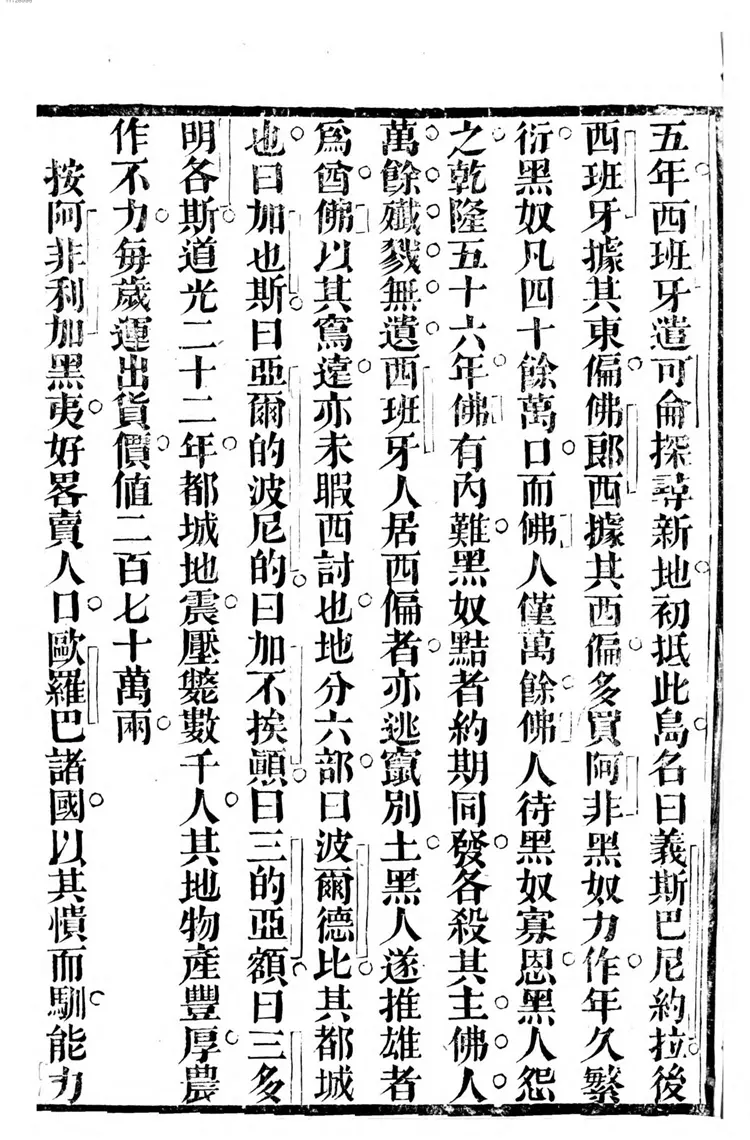 五年西班牙遣可侖探尋新地初抵此島名曰義斯巴尼約拉後
西班牙據其東偏佛郎西據其西偏多買阿非黑奴力作年久繁
衍黑奴凡四十餘萬口而佛人僅萬餘佛人待黑奴寡恩黑人怨
之乾隆五十六年佛有內難黑奴黠者約期同發各殺其主佛人
萬餘殲戮無遺西班牙人居西偏者亦逃竄別土黑人遂推雄者
爲酋佛以其窵遠亦未暇西討也地分六部曰波爾德比其都城
也曰加也斯曰亞爾的波尼的曰加不挨顚曰三的亞額曰三多
明各斯道光二十二年都城地震壓斃數千人其地物產豐厚農
作不力每歲運出貨價値二百七十萬兩
按阿非利加黑夷好畧賣人口歐羅巴諸國以其憒而馴能力